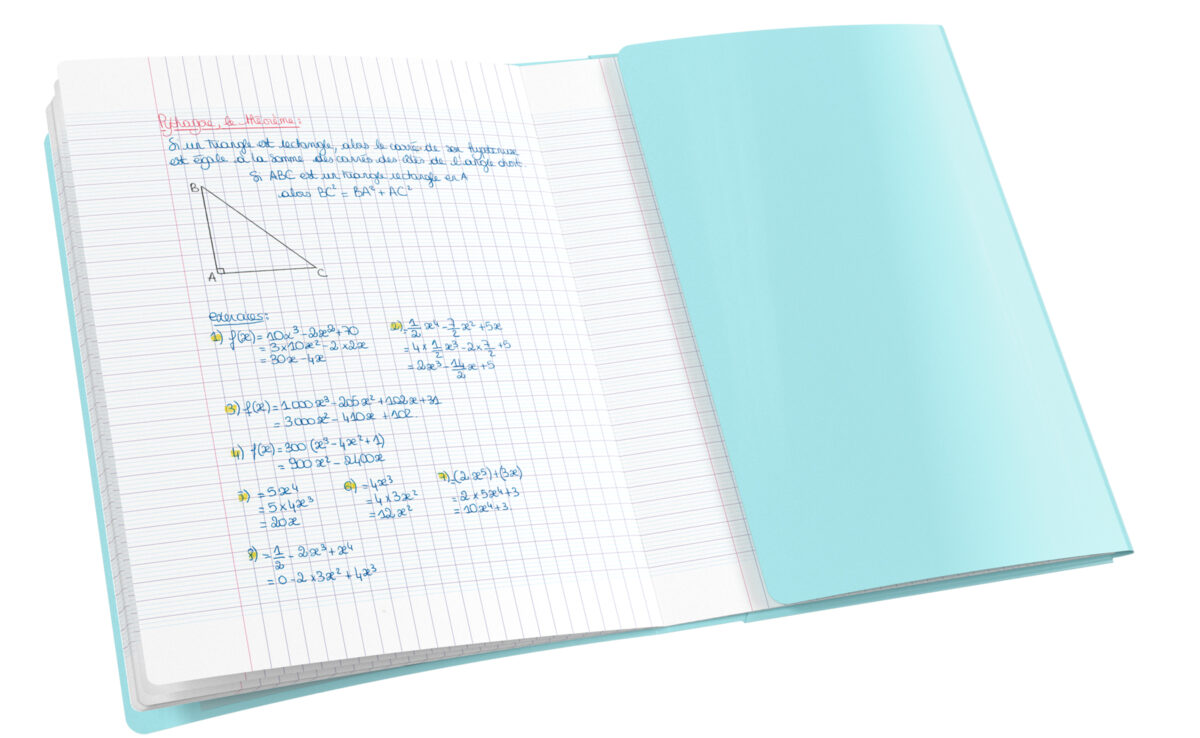 Pythagore, le théorème :
Si un triangle est rectangle, alors le carré de son hypoténuse
est égale à la somme des carrés des côtés de l'angle droit.
Si ABC est un triangle rectangle en A
alors BC² = BA² + AC²
B
A
C
exercices :
1) f(x) = 10x³ - 2x² + 70
= 3 × 10x² - 2 × 2x
= 30x - 4x
2) = 1/2 x⁴ - 7/2 x² + 5x
= 4 × 1/2 x³ - 2 × 7/2 + 5
= 2x³ - 14/2 x + 5
3) f(x) = 1000x³ - 205x² + 102x + 31
= 3000x² - 410x + 102
4) f(x) = 300 (x³ - 4x² + 1)
= 900x² - 2400x
5) = 5x⁴
= 5 × 4x³
= 20x
6) = 4x³
= 4 × 3x²
= 12x²
7) = (2x⁵) + (3x)
= 2 × 5x⁴ + 3
= 10x⁴ + 3
8) = 1/2 - 2x³ + x⁴
= 0 - 2 × 3x² + 4x³